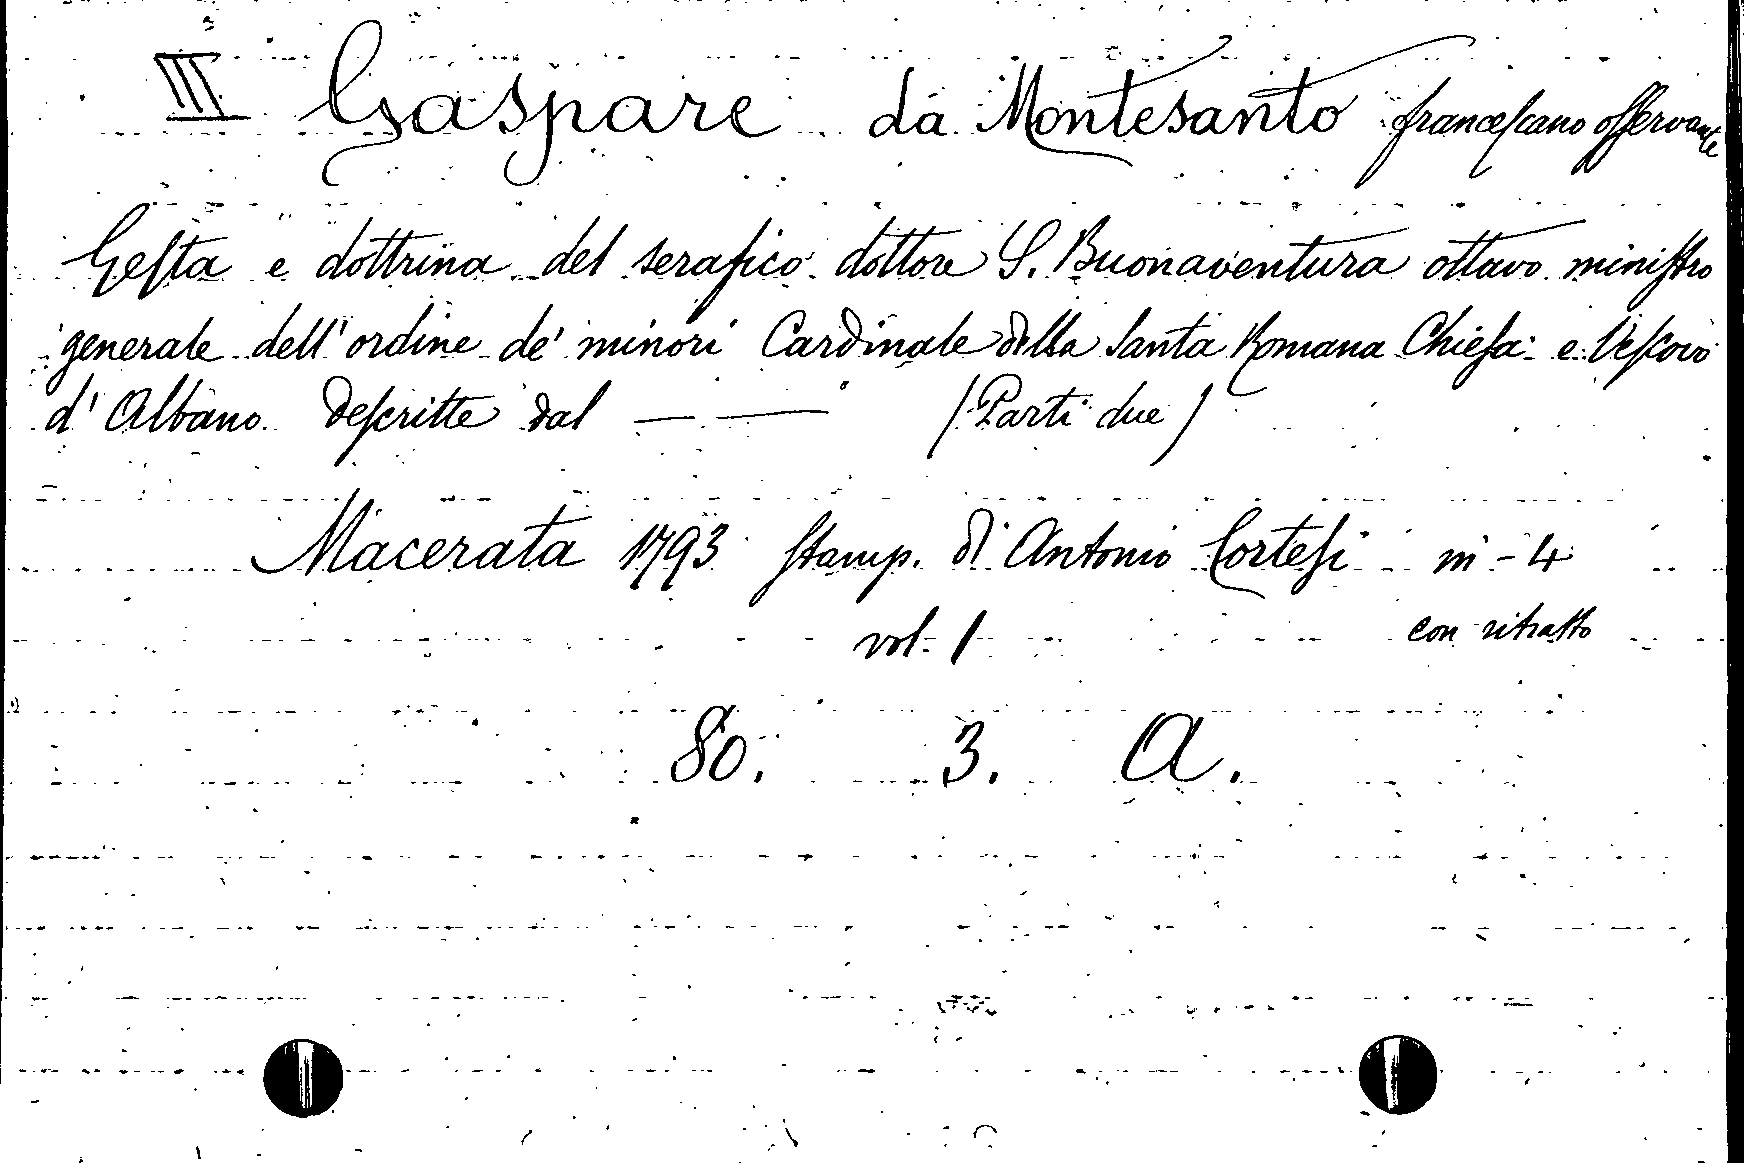 III Gaspare da Montesanto franceſcano oſſervante
Geſta e dottrina del serafico dottore S. Buonaventura ottavo miniſtro
generale dell'ordine de' minori Cardinale della Santa Romana Chieſa e Veſcovo
d'Albano deſcritte dal — — (Parti due)
Macerata 1793 Stamp. di Antonio Corteſi in-4
vol. 1 con ritratto
80. 3. A.